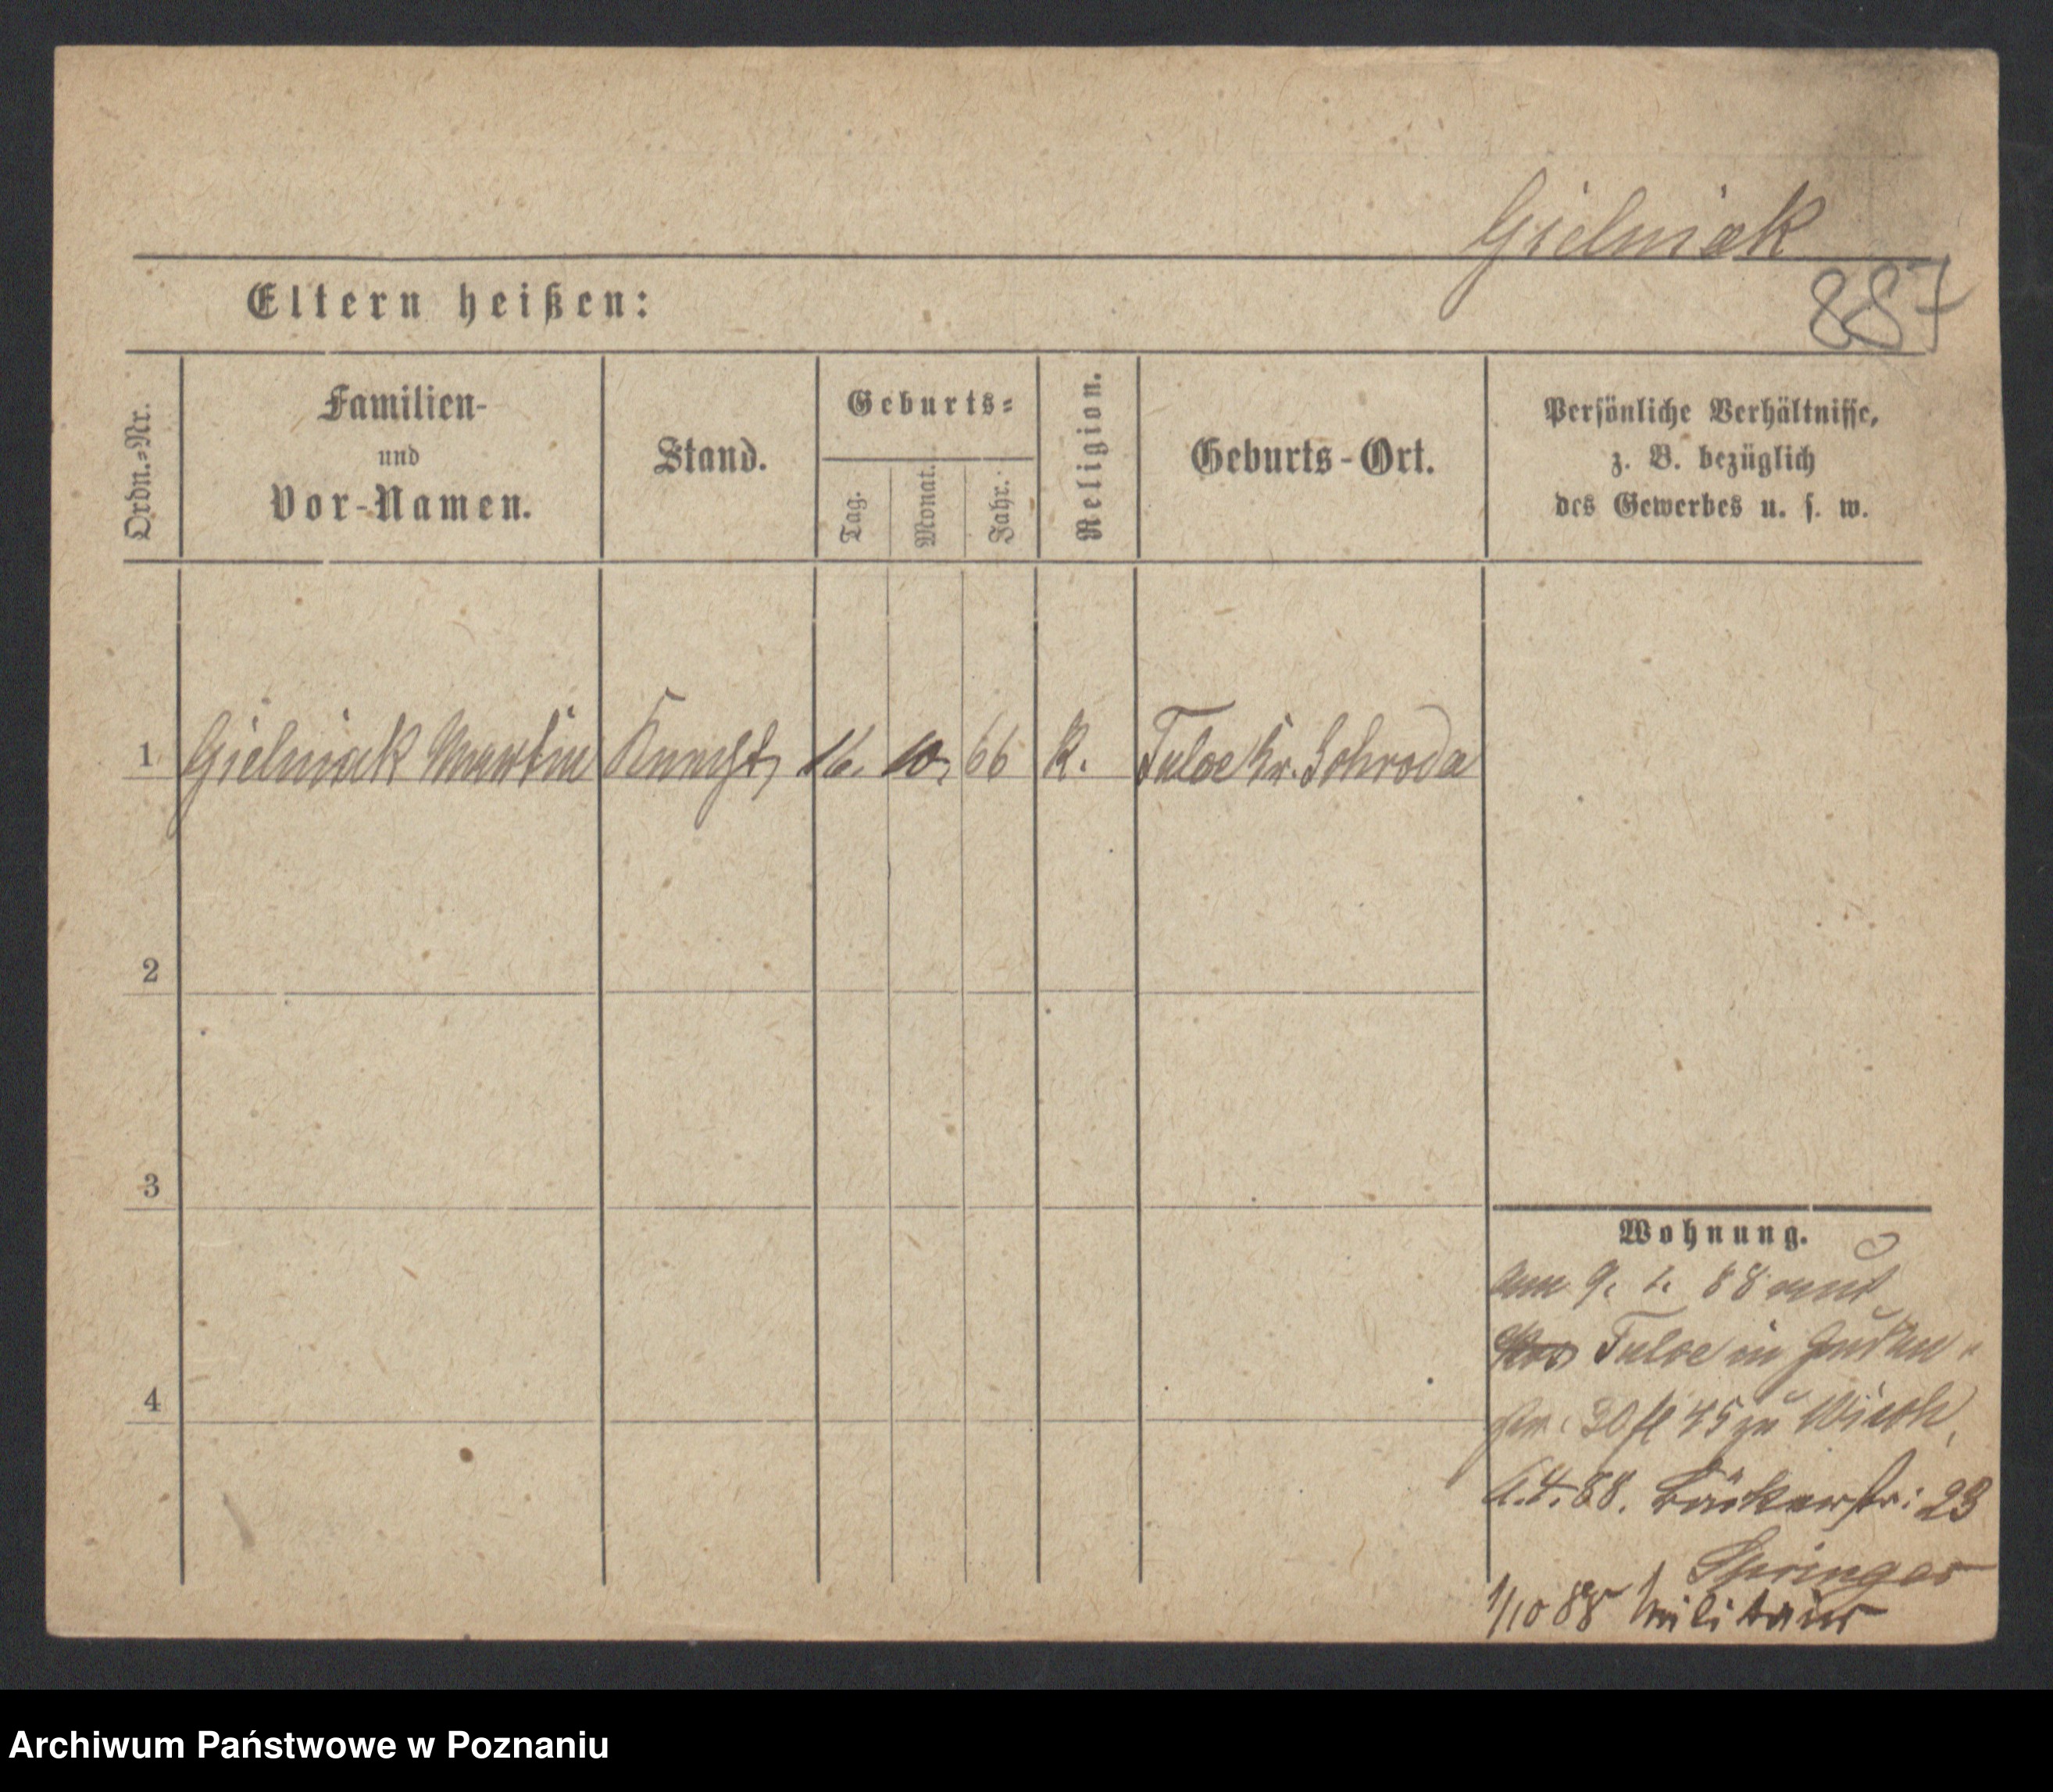 Gielniak
887
Eltern heißen:
Ordn.-Nr.
Familien-
und
Vor-Namen.
Stand.
Geburts-
Tag.
Monat.
Jahr.
Religion.
Geburts-Ort.
Persönliche Verhältnisse,
z. B. bezüglich
des Gewerbes u. s. w.
1 Gielniak Martin Knecht, 16. 10. 66 K. Tulce Kr. Schroda
2
3
4
Wohnung.
am 9. 1. 88 aus
Tulce in
45 zu
4. 88. Bäckerstr: 23
Springer
1/10 88 Militair
Archiwum Państwowe w Poznaniu